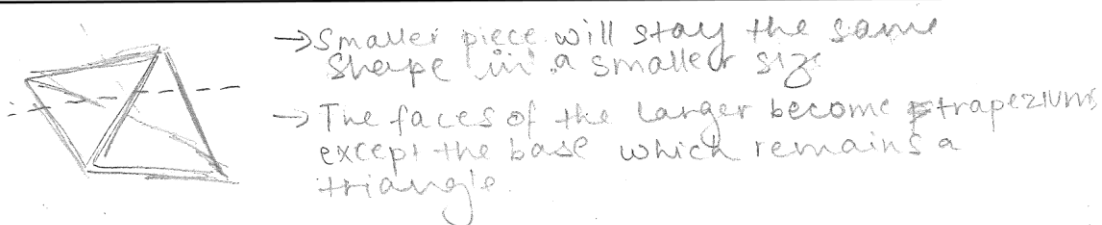 → Smaller piece will stay the same
shape in a smaller size
→ The faces of the larger become trapeziums
except the base which remains a
triangle.